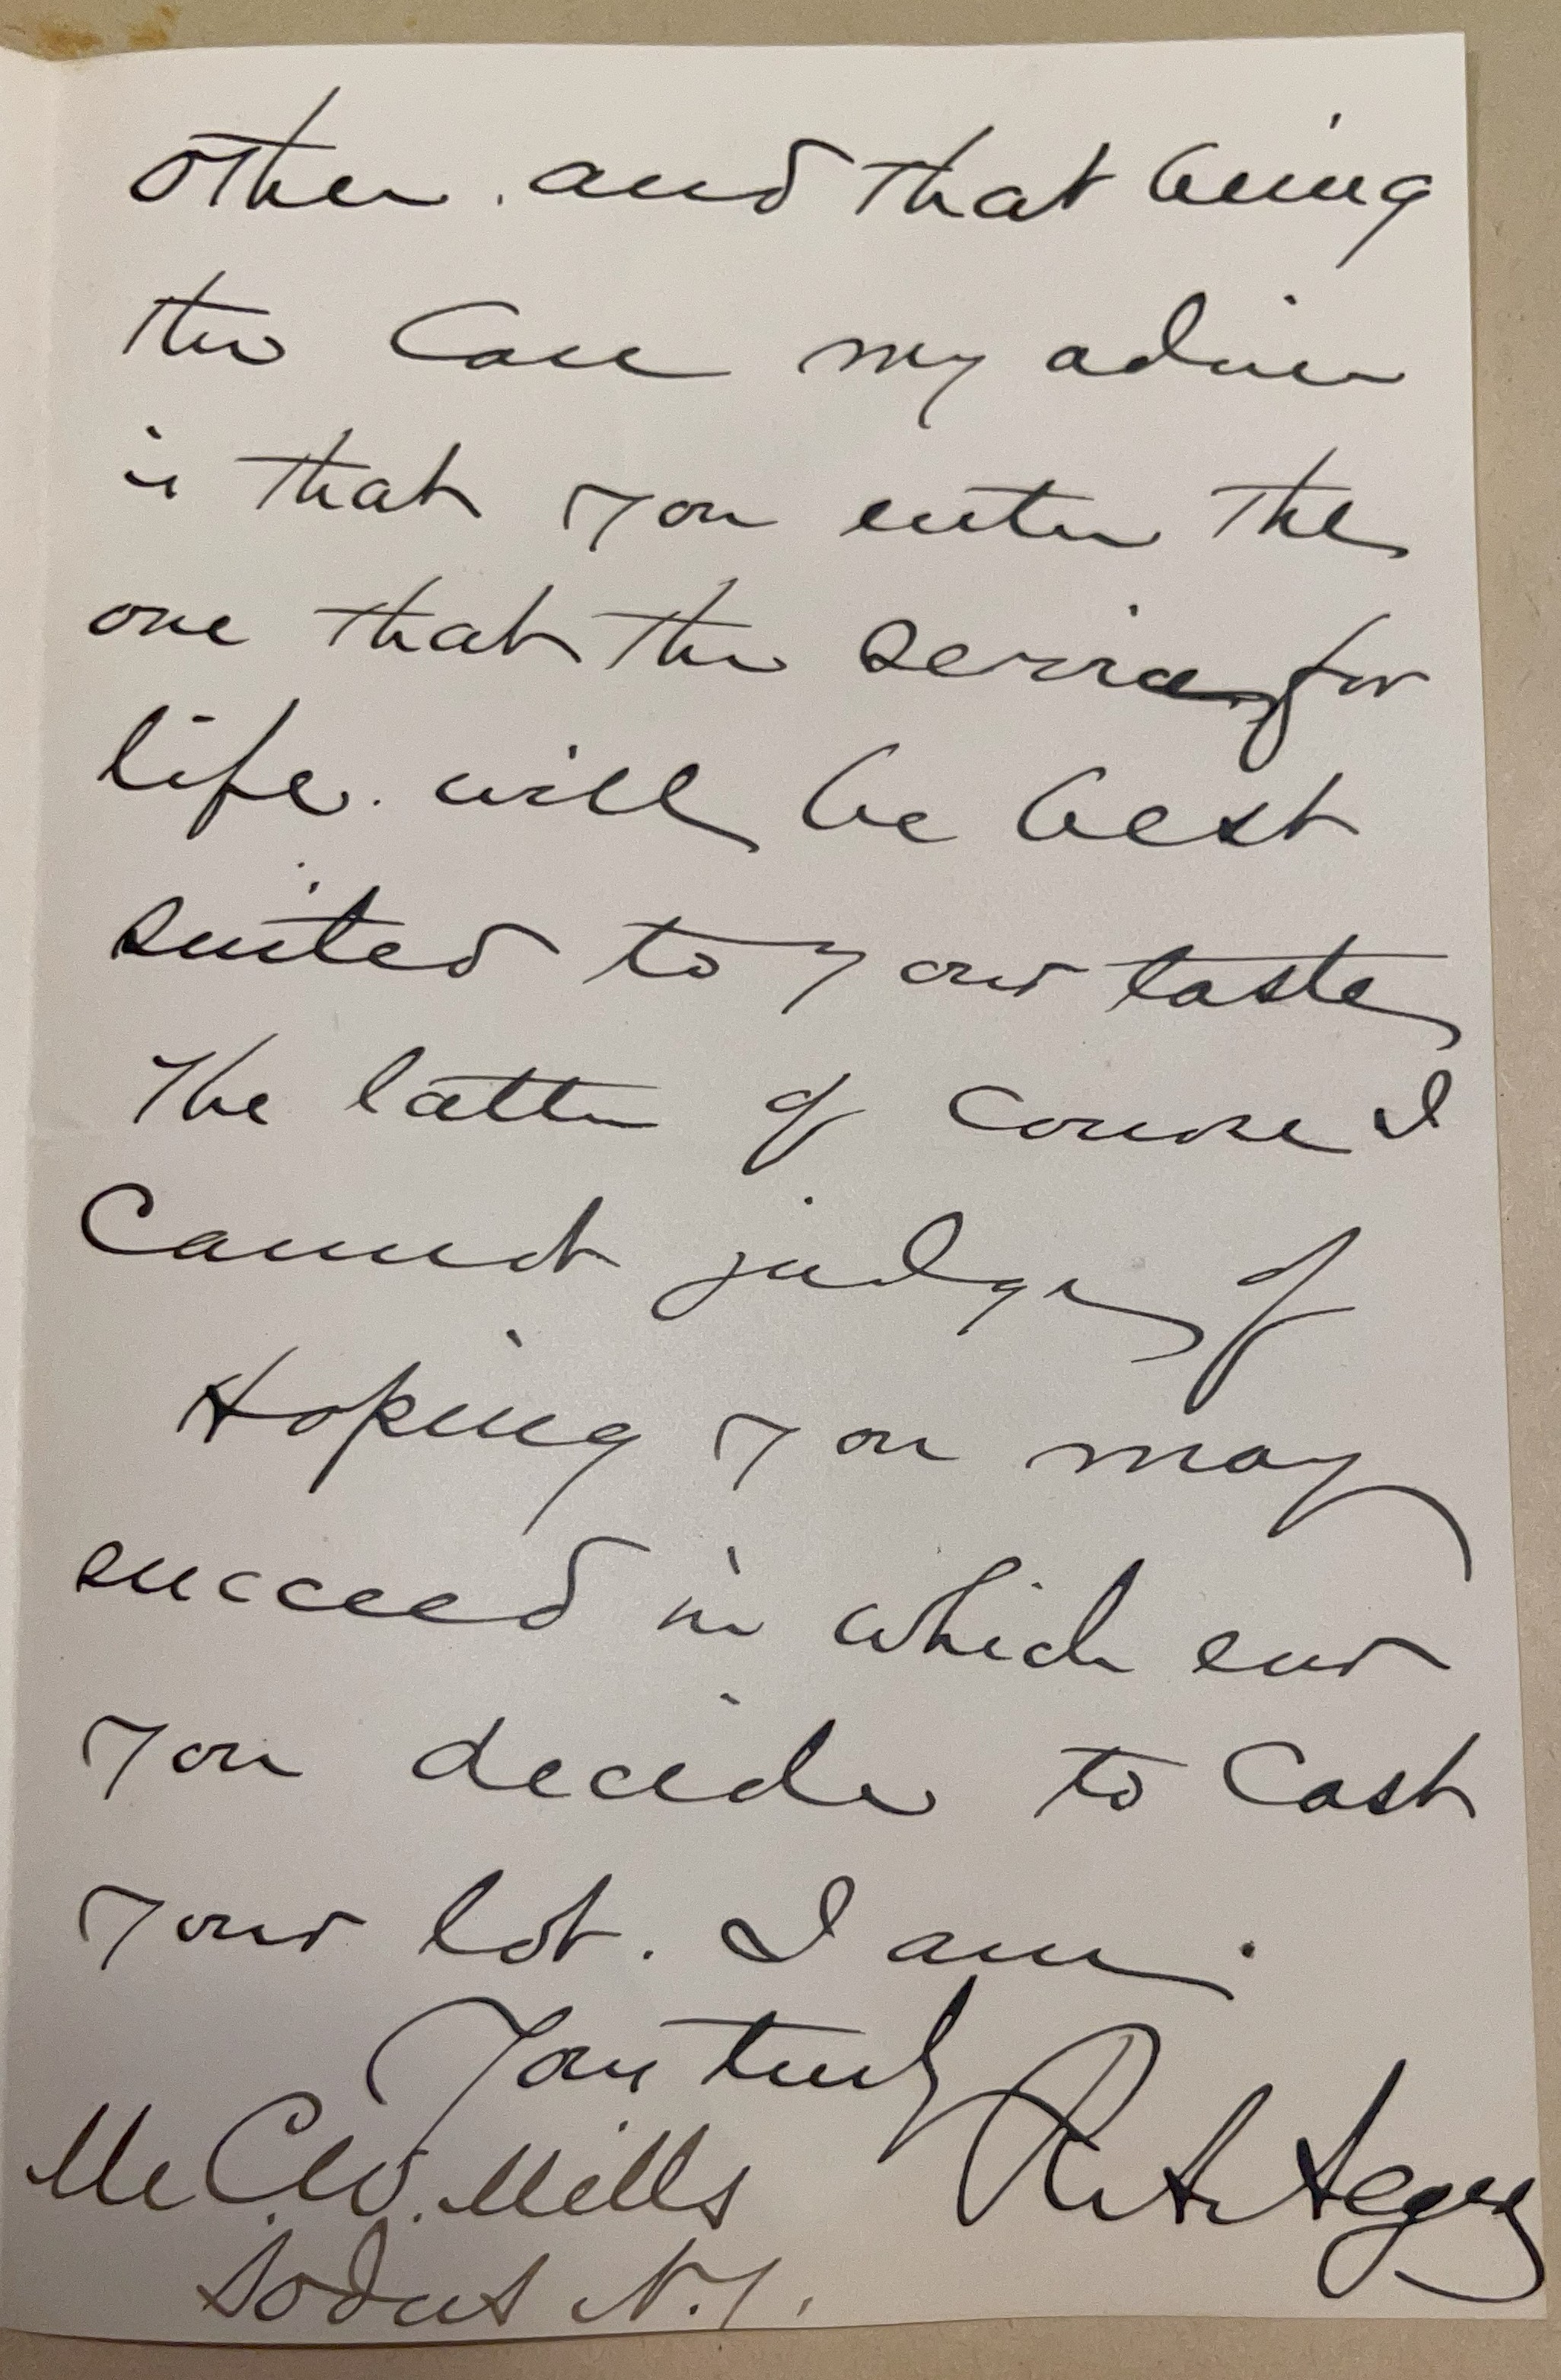 other. and that being
the Case my advice
is that you enter the
one that the service for
life. will be best
suited to your taste
The latter of course I
Cannot judge of
Hoping you may
succeed in which ever
you decide to Cast
your lot. I am.
Yours truly
R A Alger
Mr C.W. Mills
Sodus N.Y.